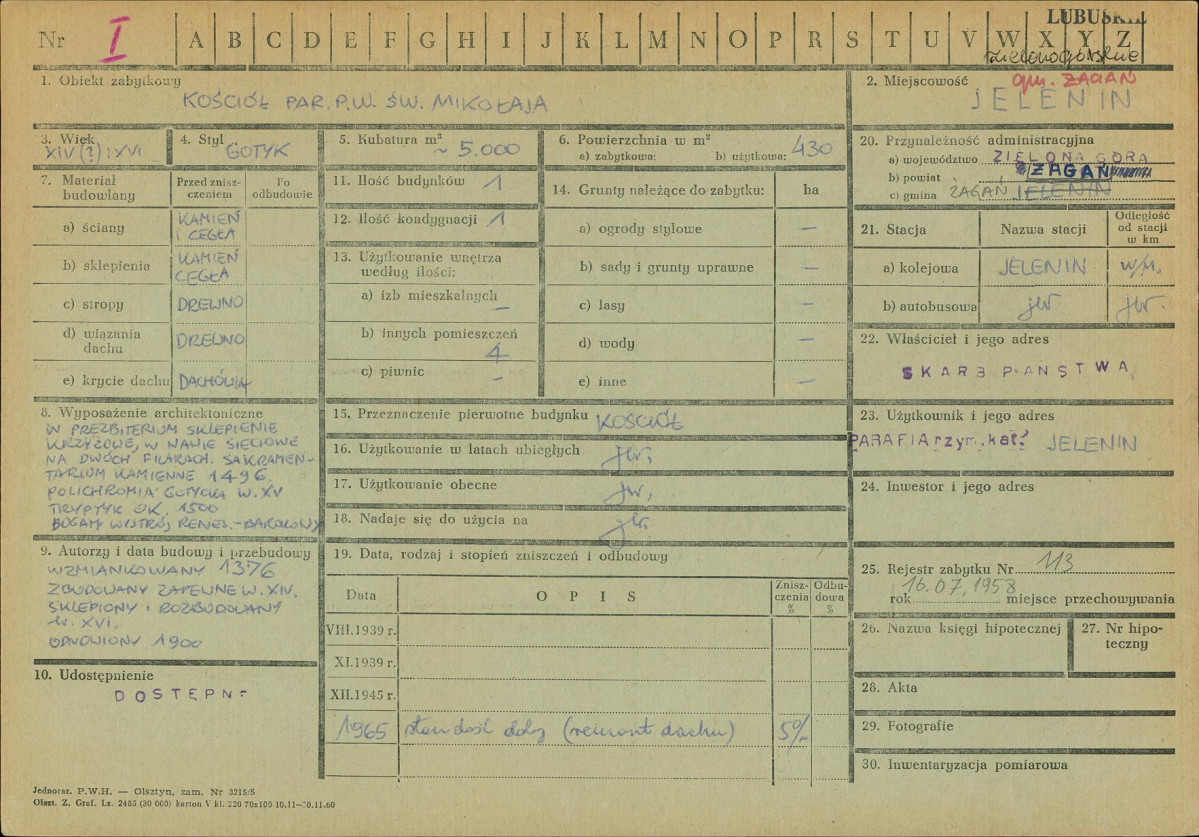 LUBUSKIE
Nr I A B C D E F G H I J K L M N O P R S T U V W X Y Z
zielonogórskie
1. Obiekt zabytkowy
KOŚCIÓŁ PAR. P.W. ŚW. MIKOŁAJA
2. Miejscowość gm. ŻAGAŃ
JELENIN
3. Wiek
XIV (?) i XVI
4. Styl
GOTYK
5. Kubatura m³
~ 5.000
6. Powierzchnia w m²
a) zabytkowa: b) użytkowa: 430
7. Materiał budowlany
Przed zniszczeniem
Po odbudowie
a) ściany KAMIEŃ
I CEGŁA
b) sklepienia KAMIEŃ
CEGŁA
c) stropy DREWNO
d) wiązania
dachu DREWNO
e) krycie dachu DACHÓWKA
8. Wyposażenie architektoniczne
W PREZBITERIUM SKLEPIENIE
KRZYŻOWE, W NAWIE SIECIOWE
NA DWÓCH FILARACH. SAKRAMEN-
TARIUM KAMIENNE 1496.
POLICHROMIA GOTYCKA W. XV
TRYPTYK OK. 1500
BOGATY WYSTRÓJ RENES.-BAROKOWY
9. Autorzy i data budowy i przebudowy
WZMIANKOWANY 1376
ZBUDOWANY ZAPEWNE W. XIV.
SKLEPIONY I ROZBUDOWANY
W. XVI.
ODNOWIONY 1900
10. Udostępnienie
DOSTĘPN
11. Ilość budynków 1
12. Ilość kondygnacji 1
13. Użytkowanie wnętrza
według ilości:
a) izb mieszkalnych
–
b) innych pomieszczeń
4
c) piwnic –
14. Grunty należące do zabytku: ha
a) ogrody stylowe –
b) sady i grunty uprawne –
c) lasy –
d) wody –
e) inne –
15. Przeznaczenie pierwotne budynku KOŚCIÓŁ
16. Użytkowanie w latach ubiegłych jw.
17. Użytkowanie obecne jw.
18. Nadaje się do użycia na jw.
19. Data, rodzaj i stopień zniszczeń i odbudowy
Data
OPIS
Zniszczenia %
Odbudowa %
VIII.1939 r.
XI.1939 r.
XII.1945 r.
1965 stan dość dobry (remont dachu) 5%
20. Przynależność administracyjna
a) województwo ZIELONA GÓRA
b) powiat ŻAGAŃ
c) gmina ŻAGAŃ JELENIN
21. Stacja
Nazwa stacji
Odległość
od stacji
w km
a) kolejowa JELENIN w/m.
b) autobusowa jw. jw.
22. Właściciel i jego adres
SKARB PAŃSTWA
23. Użytkownik i jego adres
PARAFIA rzym. kat. JELENIN
24. Inwestor i jego adres
25. Rejestr zabytku Nr 113
16.07.1958
rok miejsce przechowywania
26. Nazwa księgi hipotecznej
27. Nr hipo-
teczny
28. Akta
29. Fotografie
30. Inwentaryzacja pomiarowa
Jednoraz. P.W.H. — Olsztyn, zam. Nr 3215/S
Olszt. Z. Graf. Lz. 2485 (30 000) karton V kl. 220 70x100 10.11—30.11.60